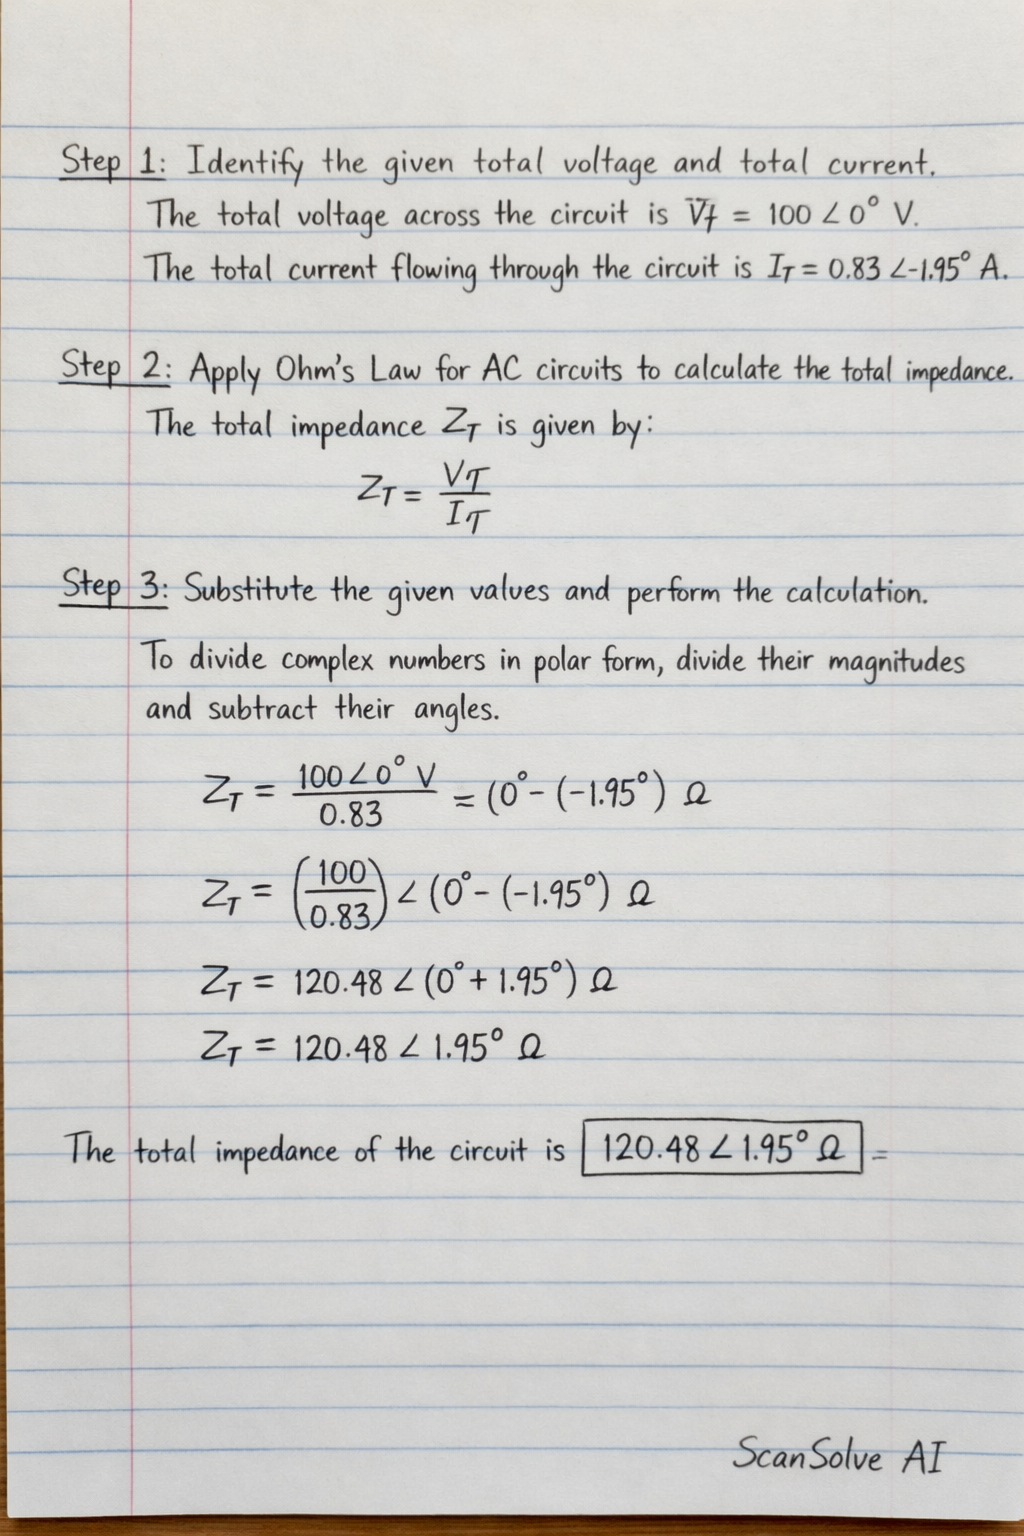 Step 1: Identify the given total voltage and total current.
The total voltage across the circuit is V̅f = 100 ∠ 0° V.
The total current flowing through the circuit is I_T = 0.83 ∠-1.95° A.
Step 2: Apply Ohm's Law for AC circuits to calculate the total impedance.
The total impedance Z_T is given by:
Z_T = V_T / I_T
Step 3: Substitute the given values and perform the calculation.
To divide complex numbers in polar form, divide their magnitudes
and subtract their angles.
Z_T = 100∠0° V / 0.83 = (0° - (-1.95°) Ω
Z_T = (100 / 0.83) ∠ (0° - (-1.95°) Ω
Z_T = 120.48 ∠ (0° + 1.95°) Ω
Z_T = 120.48 ∠ 1.95° Ω
The total impedance of the circuit is 120.48 ∠ 1.95° Ω =
ScanSolve AI